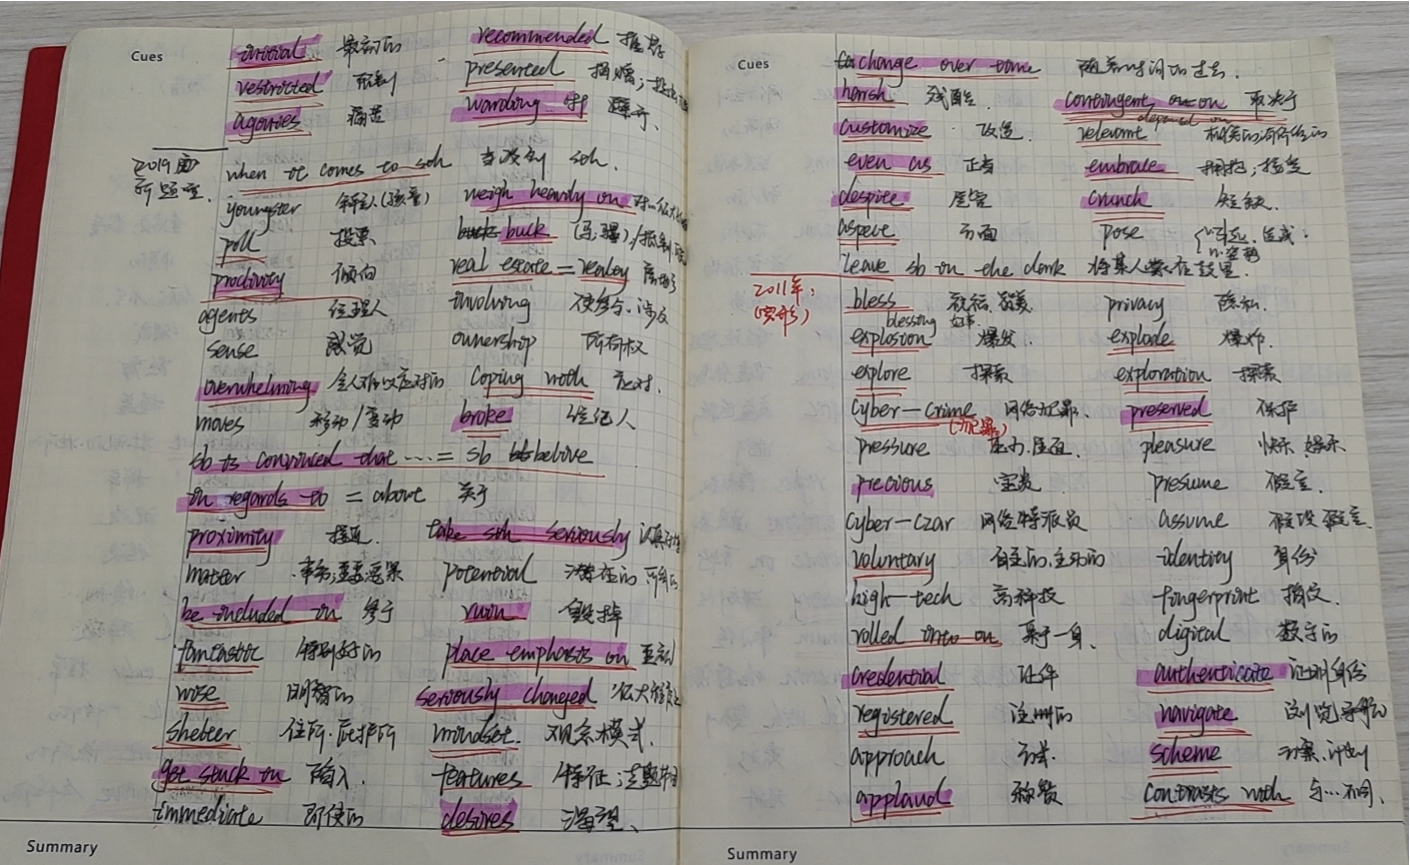 Cues
initial 最初的 recommended 推荐
restricted 限制 presented
agonies 痛苦 warding
2019 when it comes to sth 当谈到 sth.
youngster 年轻人(孩童) weigh heavily on
poll 投票 buck
proclivity 倾向 real estate = realty 房地产
agents 经理人 involving 使参与,涉及
sense 感觉 ownership 所有权
overwhelming 令人难以应对的 coping with 应对.
moves 移动/变动 broke 经纪人
sb is convinced that ... = sb believe
in regards to = about 关于
proximity 接近. take sth seriously
matter 事务;要紧 potential 潜在的
be included in 参于 ruin 毁掉
fantastic 特别好的 place emphasis on
wise 明智的 seriously changed
shelter 住所.庇护所 mindset. 观念模式.
get stuck in 陷入. features 特征;
immediate 即使的 desires 渴望、
Summary
Cues
to change over time 随着时间的过去.
harsh 残酷. contingent on 取决于
depend on
customize 改造 relevant
even as 正当 embrace 拥抱;接受
despite 尽管 crunch 短缺.
aspect 方面 pose
leave sb in the dark 将某人蒙在鼓里.
2011年:
bless 祝福. privacy 隐私.
blessing
explosion 爆发. explode 爆炸.
explore 探索 exploration 探索
cyber-crime 网络犯罪. preserved 保护
pressure 压力. pleasure 快乐 娱乐
precious 宝贵 presume 假定.
cyber-czar 网络特派员 assume 假设 假定.
voluntary 自主的,主动的 identity 身份
high-tech 高科技 fingerprint 指纹.
rolled into on 集于一身. digital 数字的
credential 证件 authenticate 证明身份
registered 注册的 navigate 浏览
approach 方法. scheme 方案.计划
applaud 称赞 contrasts with 与…不同.
Summary